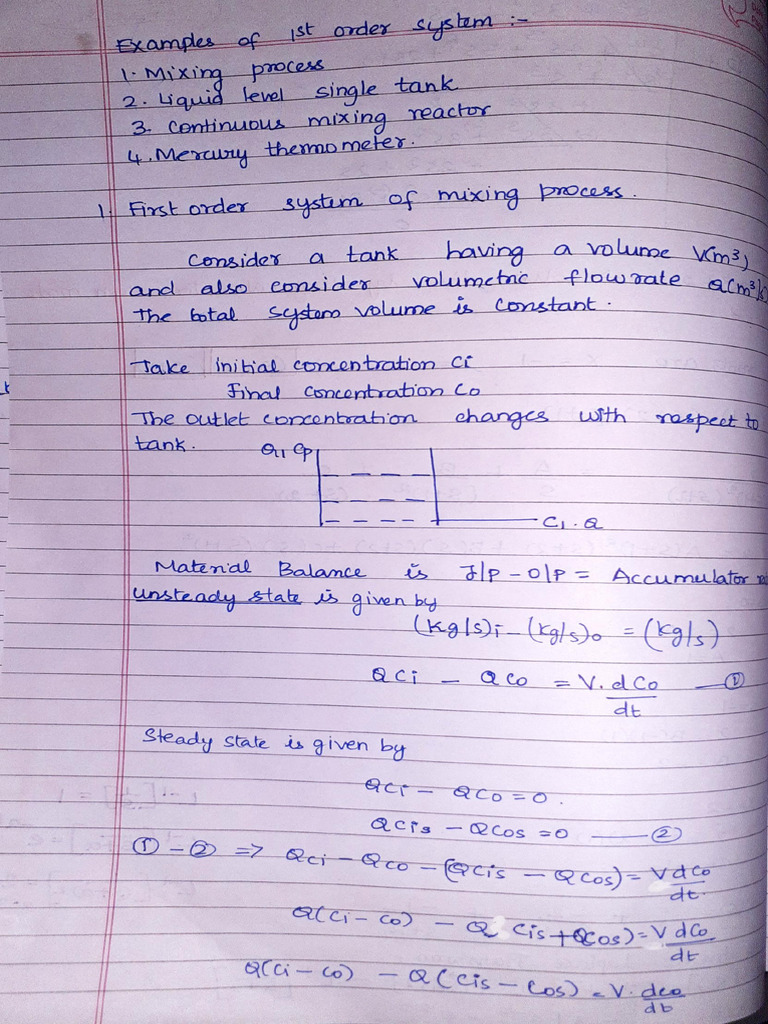 Examples of 1st order system :-
1. Mixing process
2. Liquid level single tank
3. Continuous mixing reactor
4. Mercury thermometer.
1. First order system of mixing process.
Consider a tank having a volume V(m³)
and also consider volumetric flowrate Q(m³/s)
The total system volume is constant.
Take initial concentration Ci
Final concentration Co
The outlet concentration changes with respect to
tank.
C1, Q
Material Balance is I/P - O/P = Accumulator
unsteady state is given by
(Kg/s)i - (kg/s)o = (kg/s)
QCi - QCo = V. dCo/dt — ①
Steady state is given by
QCi - QCo = 0.
QCis - QCos = 0 — ②
① - ② => QCi - QCo - (QCis - QCos) = V dCo/dt.
Q(Ci - Co) - Q Cis + QCos) = V dCo/dt
Q(Ci - Co) - Q(Cis - Cos) = V. dco/dt